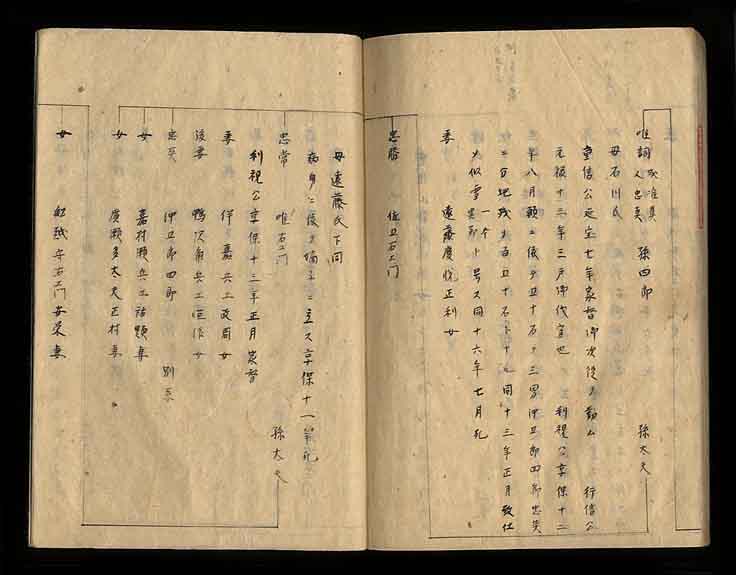 惟詞 次惟真 孫四郎 孫太夫
母石川氏
重信公延宝七年家督御次後ヲ勤ム 行信公
元禄十三年三戸御代官也 利視公享保十二
三年八月願ニ依テ五十石ヲ三男伊五郎四郎忠英
二分地残テ百五十石トナル同十三年正月致仕
久似雪 一本 ト号ス同十六年七月死
妻 遠藤慶悦正利女
忠勝 伝五右エ門
母遠藤氏下同
病身ニ依テ嫡子ニ立ス享保十一年死
忠常 惟右エ門 孫太夫
利視公享保十三年正月家督
妻 伴嘉兵エ政周女
後妻 鴨沢角兵エ恒作女
忠英 伊五郎四郎 別系
女 嘉村瀬兵エ祐顕妻
女 廣瀬多太夫正村妻
女 船越安右エ門安栄妻